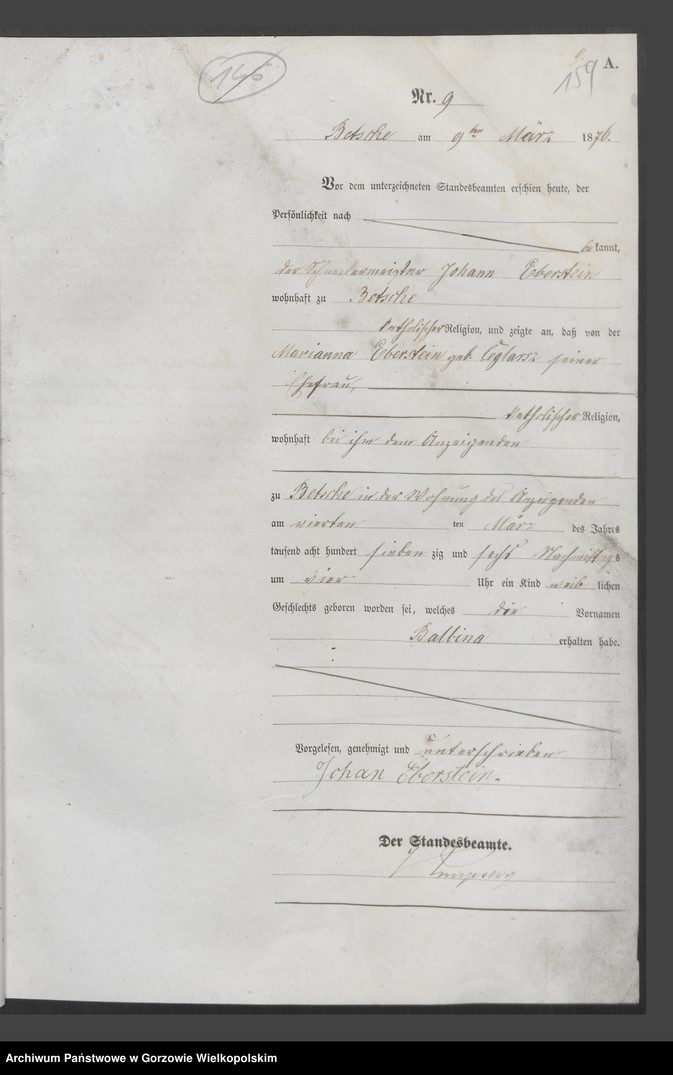 146
159 A.
Nr. 9
Betsche am 9ten März 1876.
Vor dem unterzeichneten Standesbeamten erschien heute, der
Persönlichkeit nach
bekannt,
der Schneidermeister Johann Eberstein
wohnhaft zu Betsche
katholischer Religion, und zeigte an, daß von der
Marianna Eberstein geb. seiner
Ehefrau,
katholischer Religion,
wohnhaft bei ihm dem Anzeigenden
zu Betsche in der Wohnung des Anzeigenden
am vierten ten März des Jahres
tausend acht hundert sieben zig und sechs Nachmittags
um vier Uhr ein Kind weiblichen
Geschlechts geboren worden sei, welches die Vornamen
Balbina erhalten habe.
Vorgelesen, genehmigt und unterschrieben
Johan Eberstein.
Der Standesbeamte.
Archiwum Państwowe w Gorzowie Wielkopolskim